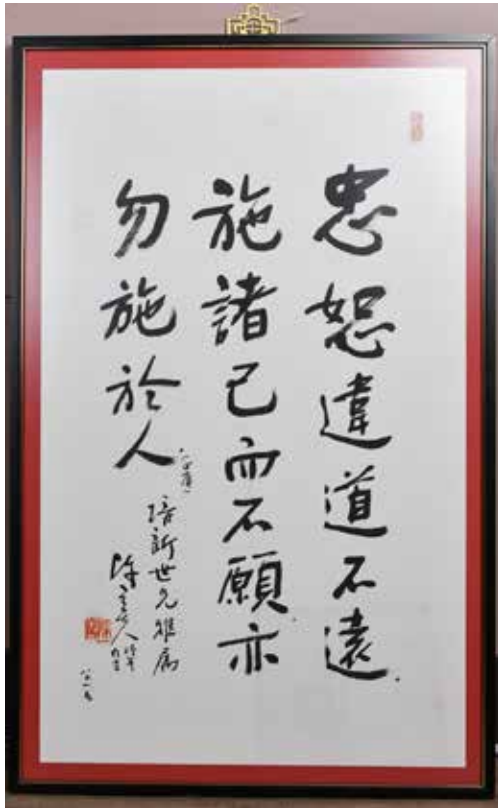 忠恕違道不遠
施諸己而不願亦
勿施於人
《中庸》
培新世兄雅屬